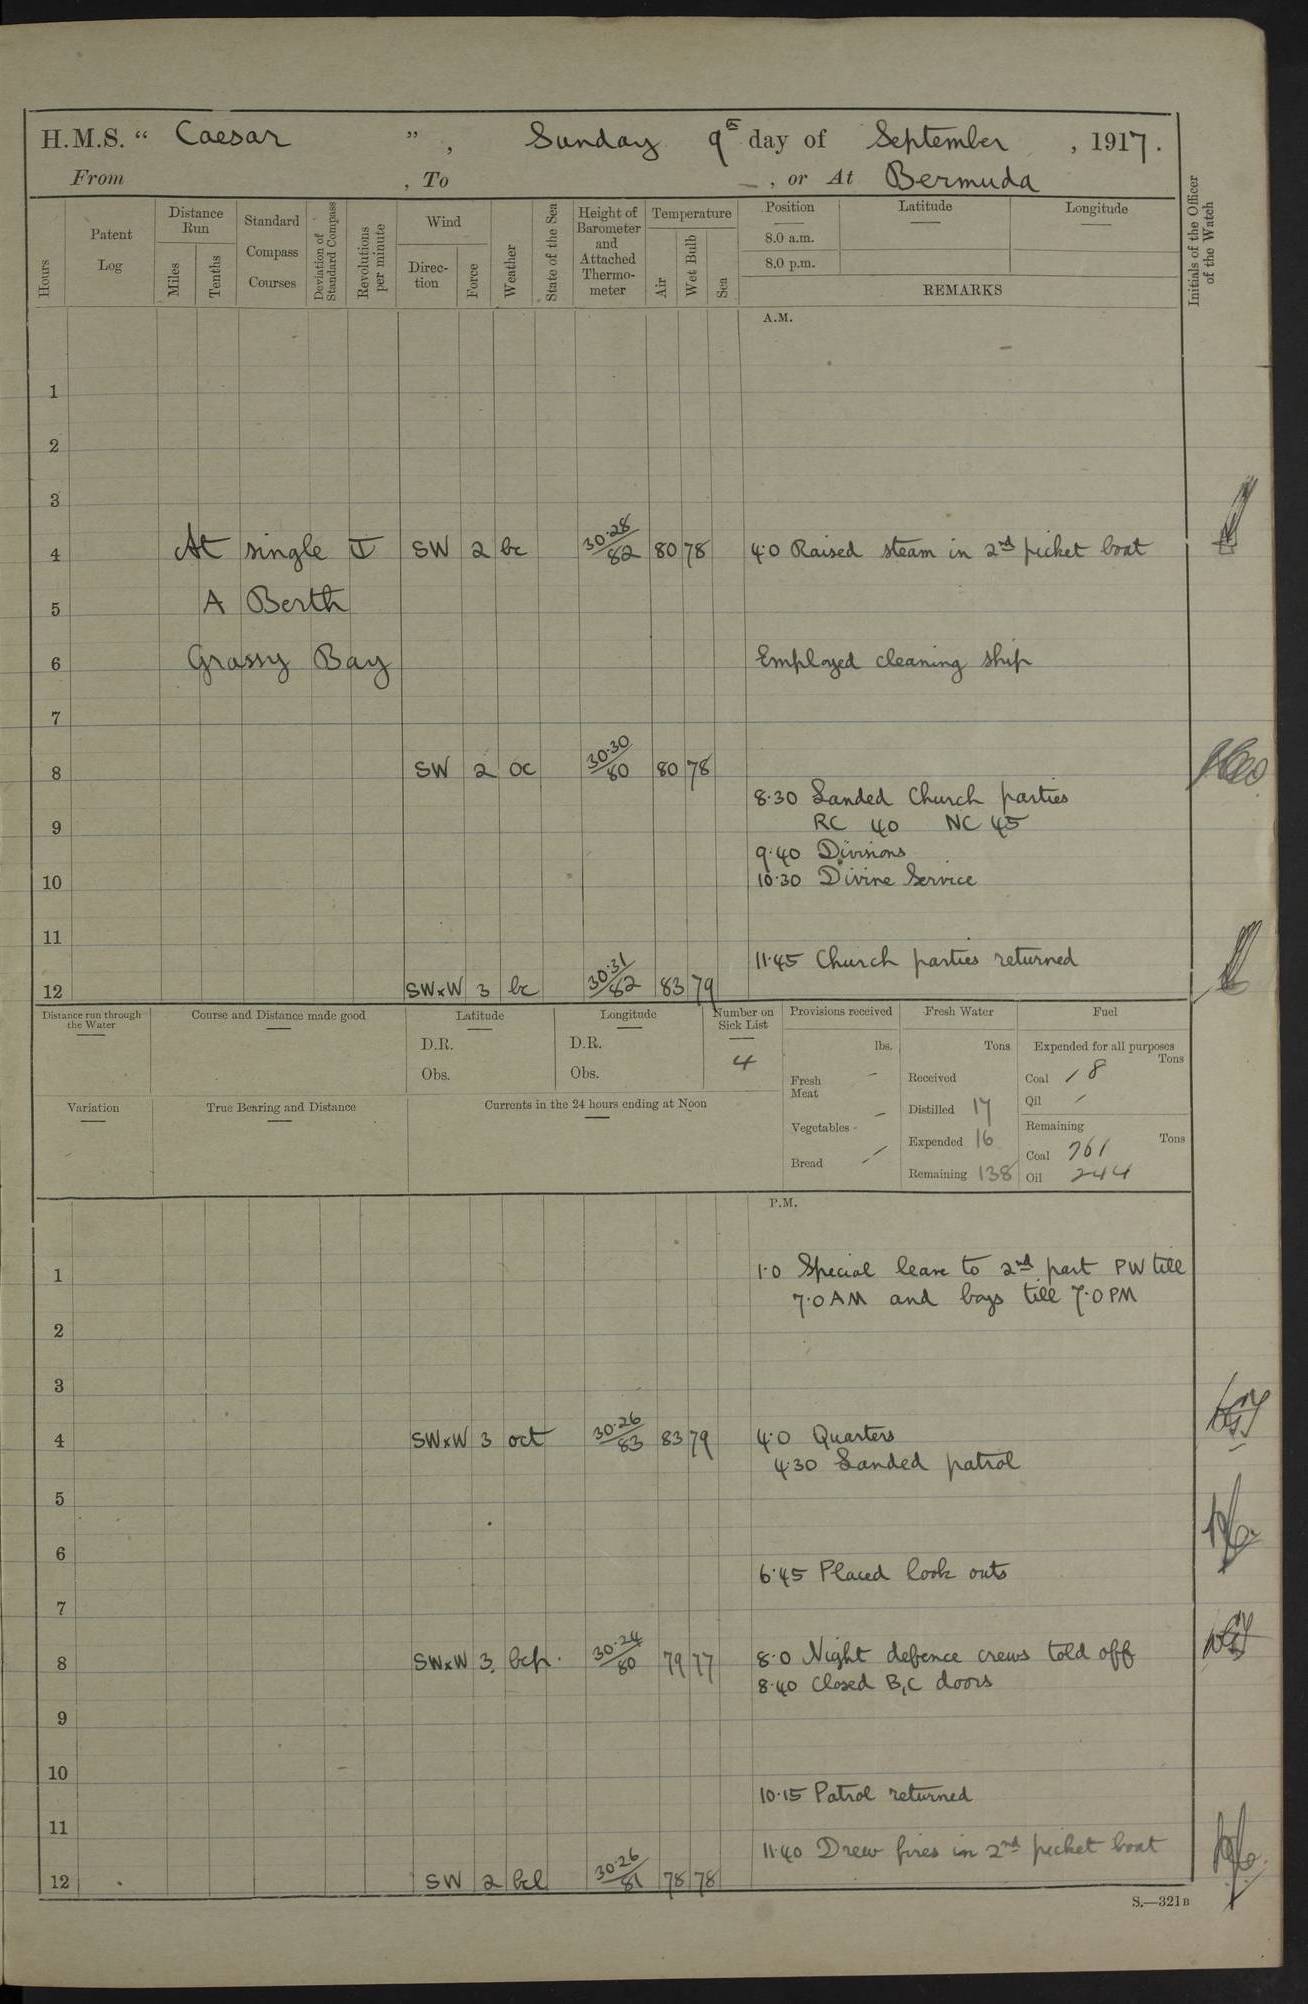 H.M.S. “ Caesar ” , Sunday 9th day of September , 1917.
From , To — , or At Bermuda
Hours
Patent Log
Distance Run
Miles
Tenths
Standard Compass Courses
Deviation of Standard Compass
Revolutions per minute
Wind
Direc-tion
Force
Weather
State of the Sea
Height of Barometer and Attached Thermo-meter
Temperature
Air
Wet Bulb
Sea
Position
8.0 a.m.
8.0 p.m.
Latitude
Longitude
REMARKS
Initials of the Officer of the Watch
A.M.
1
2
3
4 At single SW 2 bc 30.28/82 80 78 4.0 Raised steam in 2nd picket boat
5 A Berth
6 Grassy Bay Employed cleaning ship
7
8 SW 2 oc 30.30/80 80 78
8.30 Landed Church parties
9 RC 40 NC 45
9.40 Divisions
10 10.30 Divine Service
11
11.45 Church parties returned
12 SWxW 3 bc 30.31/82 83 79
Distance run through the Water
Course and Distance made good
Latitude
D.R.
Obs.
Longitude
D.R.
Obs.
Number on Sick List
4
Provisions received
lbs.
Fresh Meat -
Vegetables -
Bread -
Fresh Water
Tons
Received
Distilled 17
Expended 16
Remaining 138
Fuel
Expended for all purposes
Tons
Coal 18
Oil -
Remaining
Tons
Coal 761
Oil 244
Variation
True Bearing and Distance
Currents in the 24 hours ending at Noon
P.M.
1 1.0 Special leave to 2nd part PW till
7.0 AM and boys till 7.0 PM
2
3
4 SWxW 3 oct 30.26/83 83 79 4.0 Quarters
4.30 Landed patrol
5
6
6.45 Placed look outs
7
8 SWxW 3 bcp. 30.24/80 79 77 8.0 Night defence crews told off
8.40 Closed B,C doors
9
10
10.15 Patrol returned
11
11.40 Drew fires in 2nd picket boat
12 SW 2 bcl 30.26/81 78 78
S.—321B